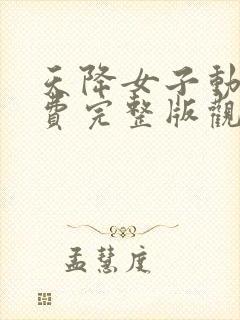 天降女子動
費完整版觀
孟慧庭